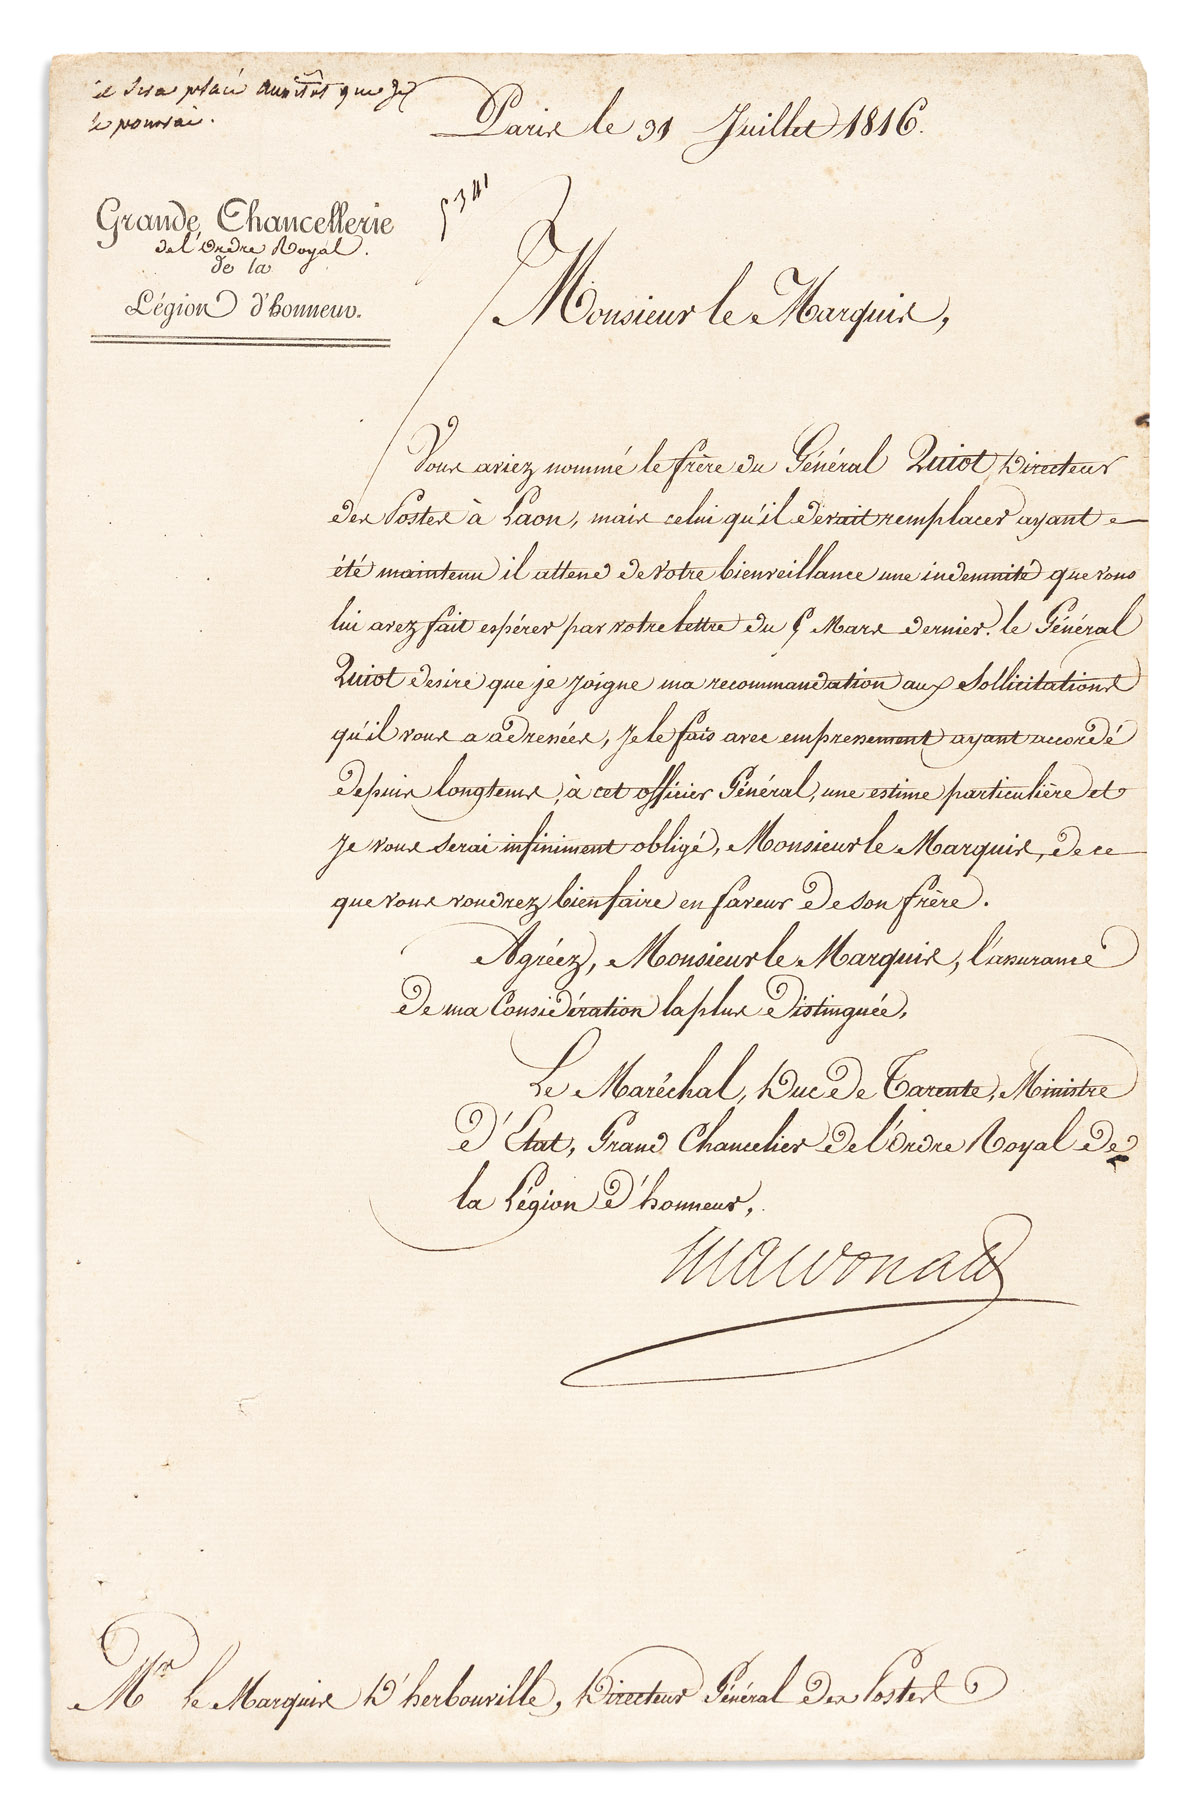 il sera placé aussitôt que je
le pourrai.
Paris le 31 Juillet 1816.
5341
Grande Chancellerie
de l'Ordre Royal.
de la
Légion d'honneur.
Monsieur le Marquis,
Vous aviez nommé le frère du Général Quiot, Directeur
des Postes à Laon, mais celui qu'il devait remplacer ayant
été maintenu il attend de votre bienveillance une indemnité que vous
lui avez fait espérer par votre lettre du 5 Mars dernier. le Général
Quiot desire que je joigne ma recommandation aux Sollicitations
qu'il vous a adressées, je le fais avec empressement ayant accordé
depuis longtems, à cet officier Général, une estime particulière et
je vous serai infiniment obligé, Monsieur le Marquis, de ce
que vous voudrez bien faire en faveur de son frère.
Agréez, Monsieur le Marquis, l'assurance
de ma Considération la plus distinguée,
Le Maréchal, Duc de Tarente, Ministre
d'Etat, Grand Chancelier de l'Ordre Royal de
la Légion d'honneur,
Macdonald
Mr le Marquis D'herbouville, Directeur Général des Postes